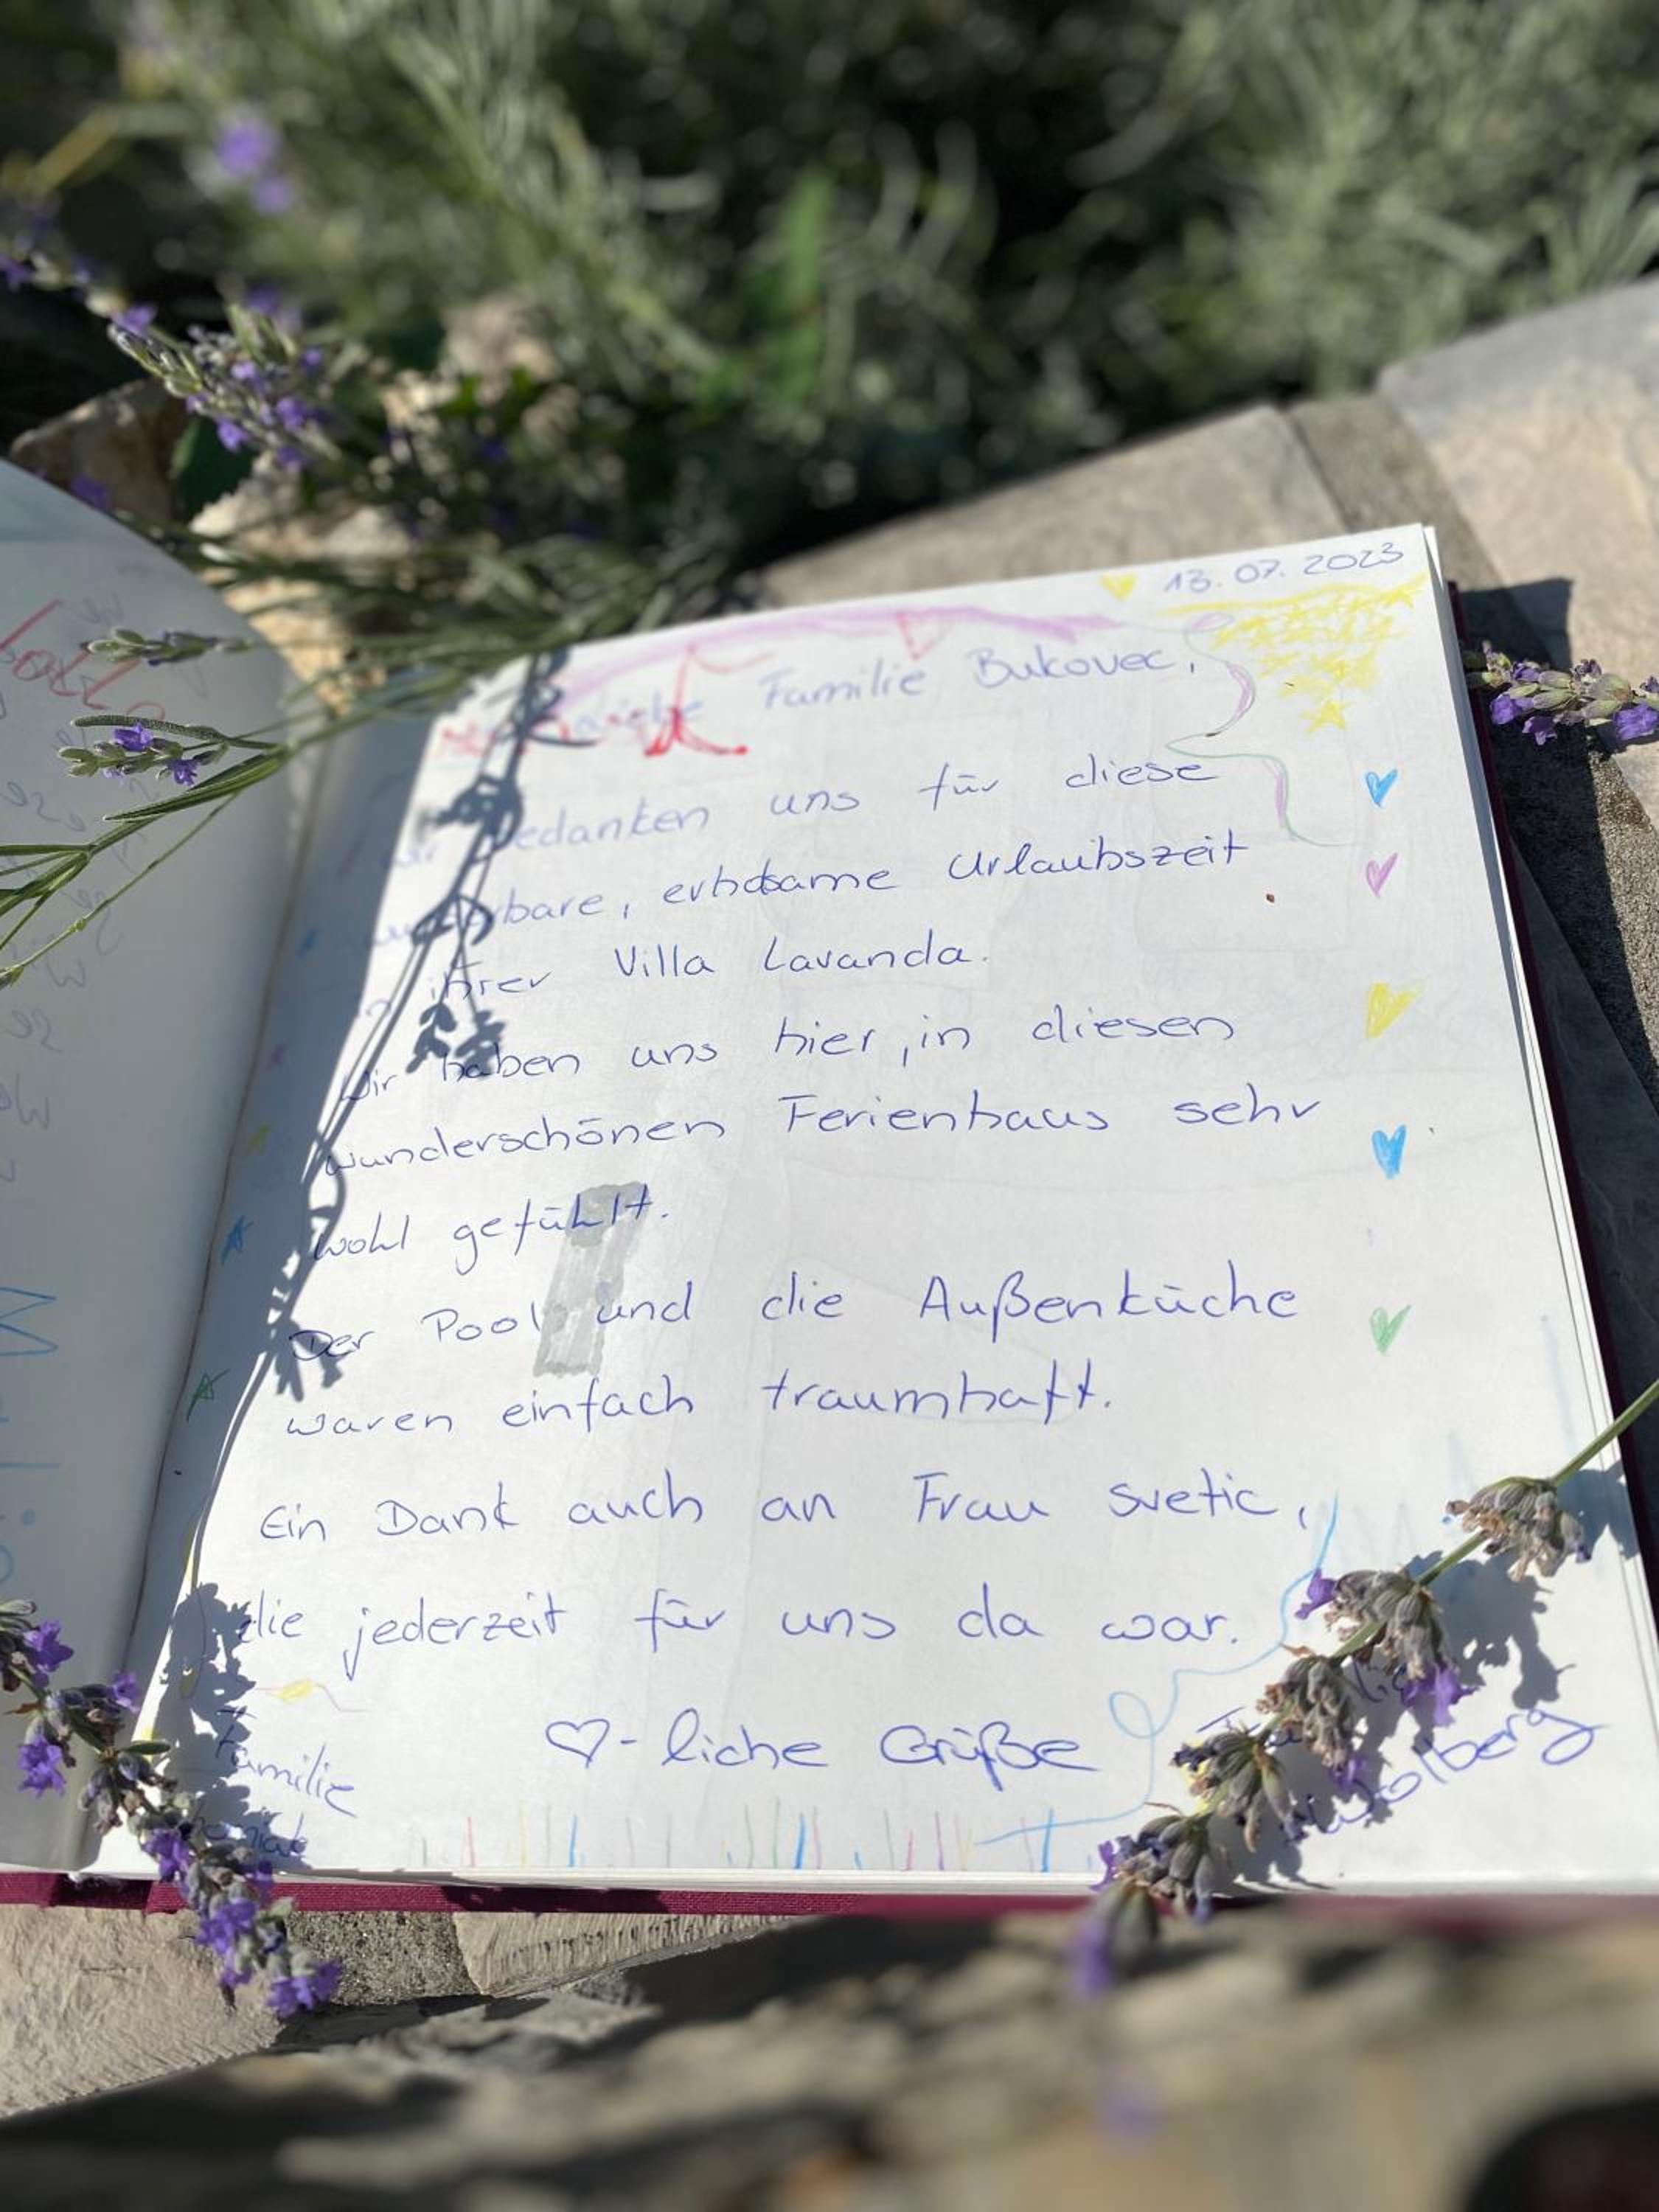 13.07.2023
Familie Bukovec,
bedanken uns für diese
erholsame Urlaubszeit
ihrer Villa Lavanda.
Wir haben uns hier, in diesen
wunderschönen Ferienhaus sehr
wohl gefühlt.
Der Pool und die Außenküche
waren einfach traumhaft.
Ein Dank auch an Frau Svetic,
die jederzeit für uns da war.
♡-liche Grüße
Familie
Wolberg